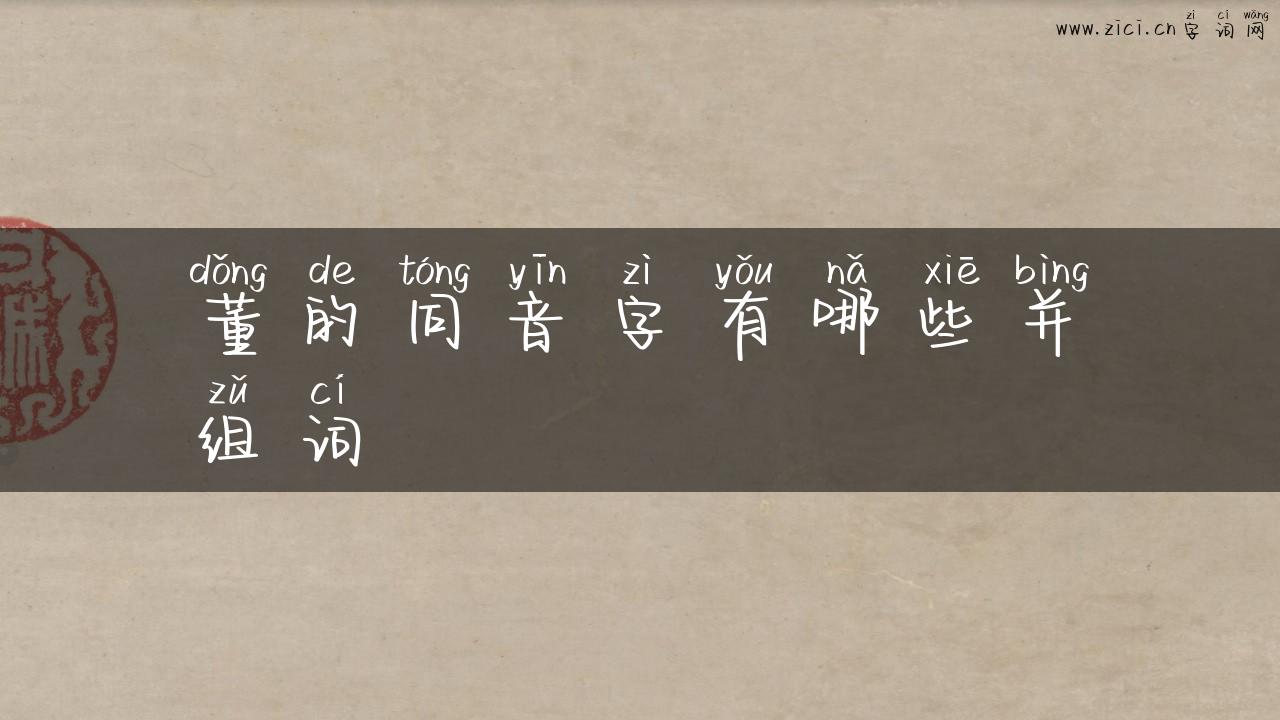 zì cí wǎng
www.zici.cn字词网
dǒng de tóng yīn zì yǒu nǎ xiē bìng
董的同音字有哪些并
zǔ cí
组词